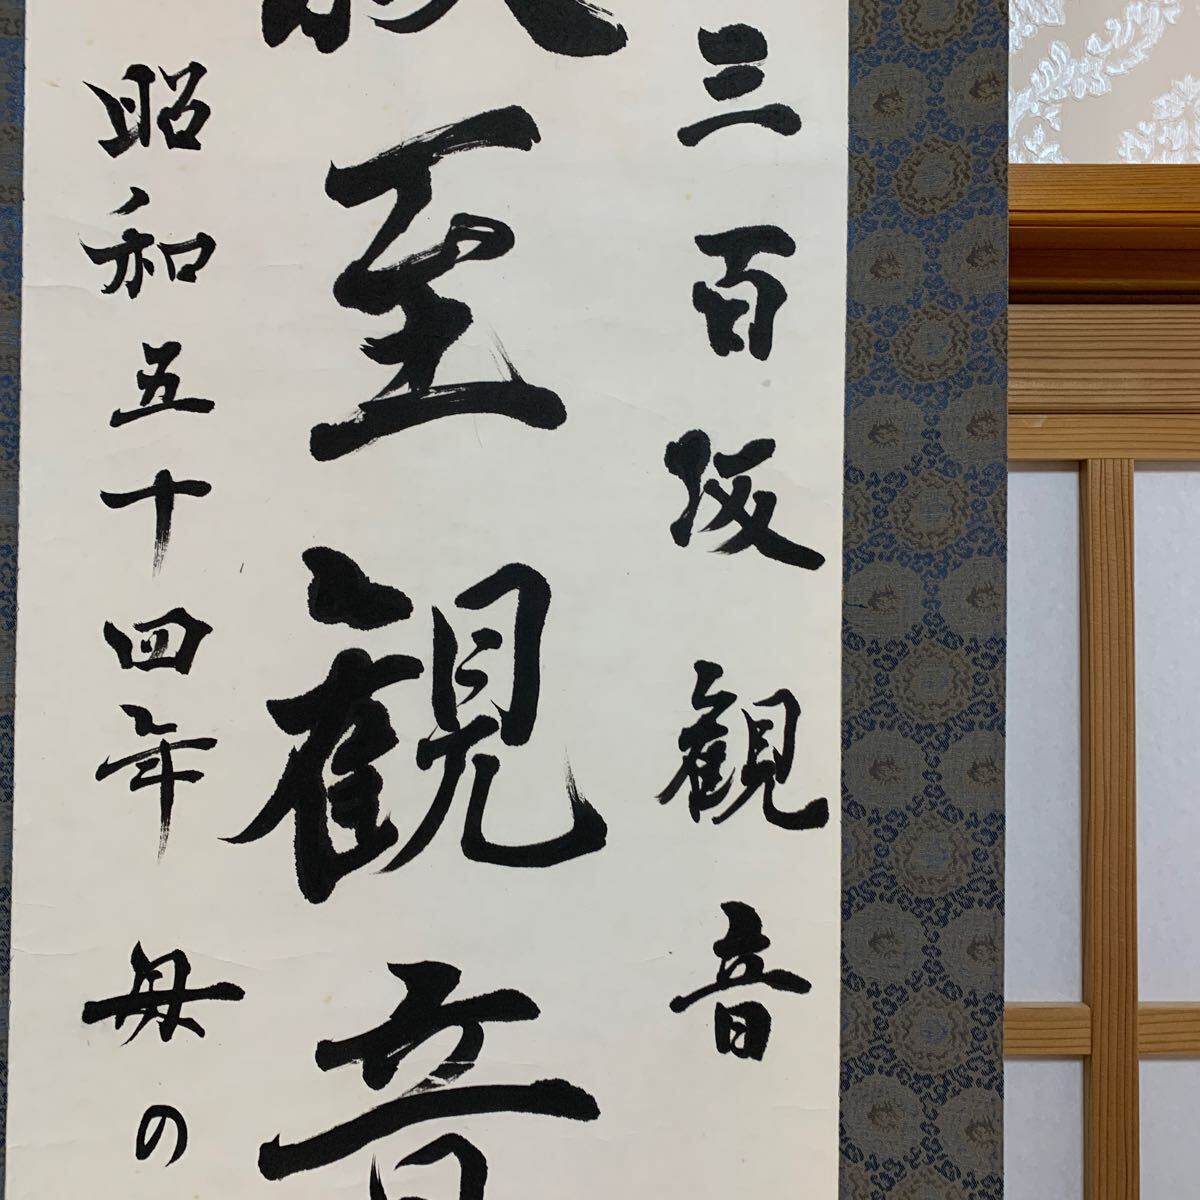 三百坂観音
至観音
昭和五十四年 母の